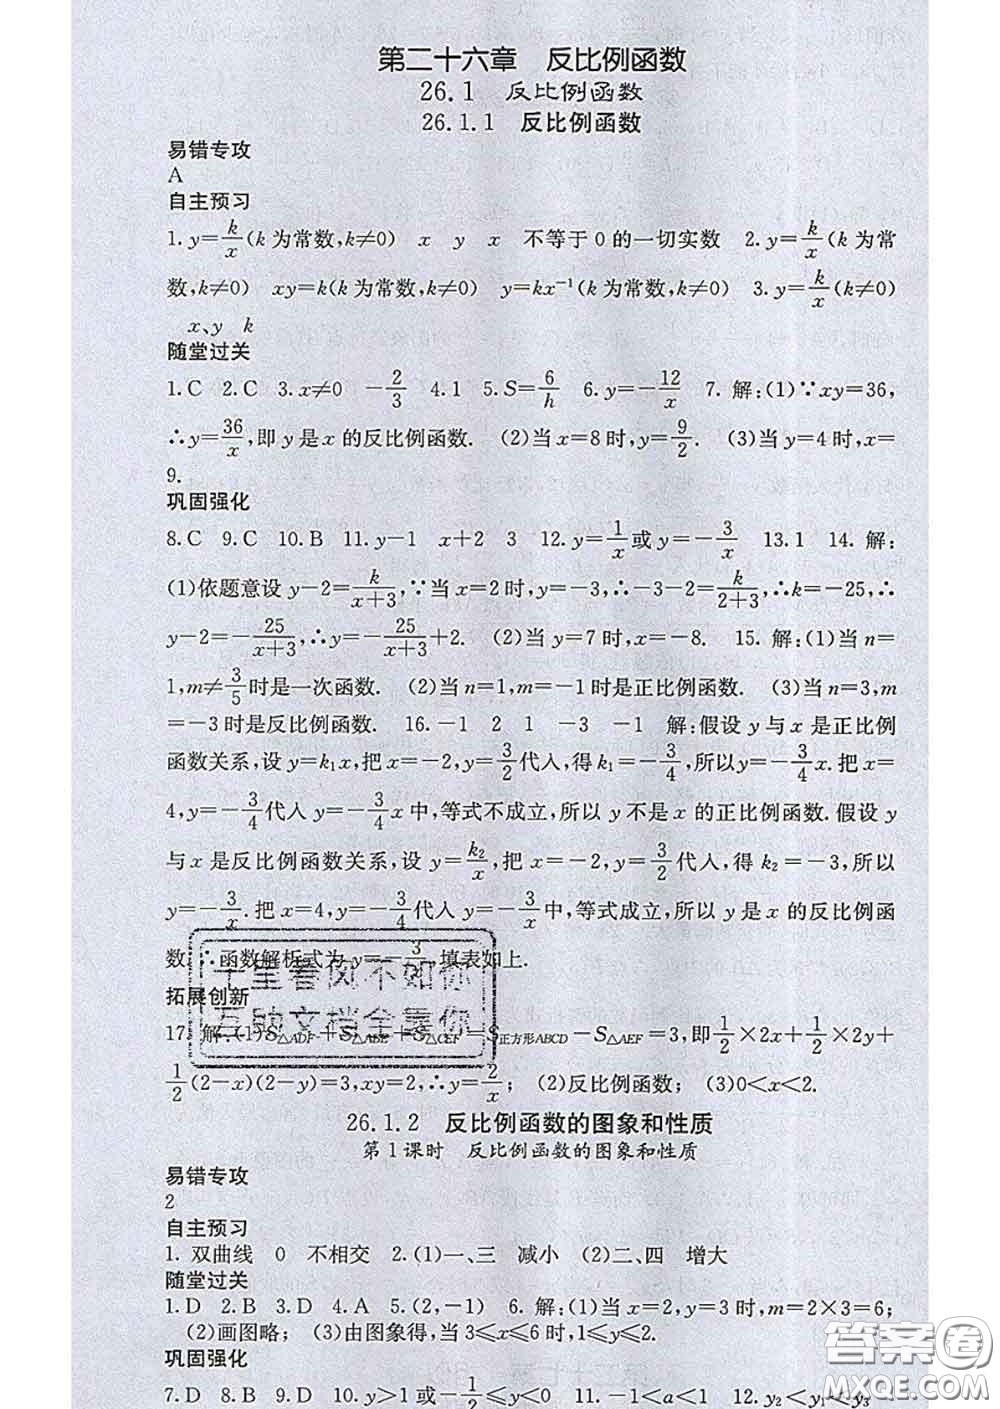 第二十六章 反比例函数
26.1 反比例函数
26.1.1 反比例函数
易错专攻
A
自主预习
1. y=k/x(k 为常数,k≠0) x y x 不等于 0 的一切实数 2. y=k/x(k 为常
数,k≠0) xy=k(k 为常数,k≠0) y=kx⁻¹(k 为常数,k≠0) 3. y=k/x(k≠0)
x、y k
随堂过关
1. C 2. C 3. x≠0 -2/3 4. 1 5. S=6/h 6. y=-12/x 7. 解:(1)∵xy=36,
∴y=36/x,即 y 是 x 的反比例函数. (2)当 x=8 时,y=9/2. (3)当 y=4 时,x=
9.
巩固强化
8. C 9. C 10. B 11. y-1 x+2 3 12. y=1/x或 y=-3/x 13. 1 14. 解:
(1)依题意设 y-2=k/(x+3),∵当 x=2 时,y=-3,∴-3-2=k/(2+3),∴k=-25,∴
y-2=-25/(x+3),∴y=-25/(x+3)+2. (2)当 y=7 时,x=-8. 15. 解:(1)当 n=
1,m≠3/5时是一次函数. (2)当 n=1,m=-1 时是正比例函数. (3)当 n=3,m
=-3 时是反比例函数. 16. -1 2 1 -3 -1 解:假设 y 与 x 是正比例
函数关系,设 y=k₁x,把 x=-2,y=3/2代入,得 k₁=-3/4,所以 y=-3/4x. 把 x=
4,y=-3/4代入 y=-3/4x 中,等式不成立,所以 y 不是 x 的正比例函数. 假设 y
与 x 是反比例函数关系,设 y=k₂/x,把 x=-2,y=3/2代入,得 k₂=-3,所以
y=-3/x. 把 x=4,y=-3/4代入 y=-3/x中,等式成立,所以 y 是 x 的反比例函
数. ∴函数解析式为 y=-3/x,填表如上.
千里春风不如你
拓展创新
互助文档全靠你
17. 解:(1)S△ADF+S△ABE+S△CEF=S正方形ABCD-S△AEF=3,即1/2×2x+1/2×2y+
1/2(2-x)(2-y)=3,xy=2,∴y=2/x; (2)反比例函数; (3)0<x<2.
26.1.2 反比例函数的图象和性质
第 1 课时 反比例函数的图象和性质
易错专攻
2
自主预习
1. 双曲线 0 不相交 2. (1)一、三 减小 (2)二、四 增大
随堂过关
1. D 2. B 3. D 4. A 5. (2,-1) 6. 解:(1)当 x=2,y=3 时,m=2×3=6;
(2)画图略; (3)由图象得,当 3≤x≤6 时,1≤y≤2.
巩固强化
7. D 8. B 9. D 10. y>1 或-1/2≤y<0 11. -1<a<1 12. y₂<y₁<y₃
答案圈
MXQE.COM